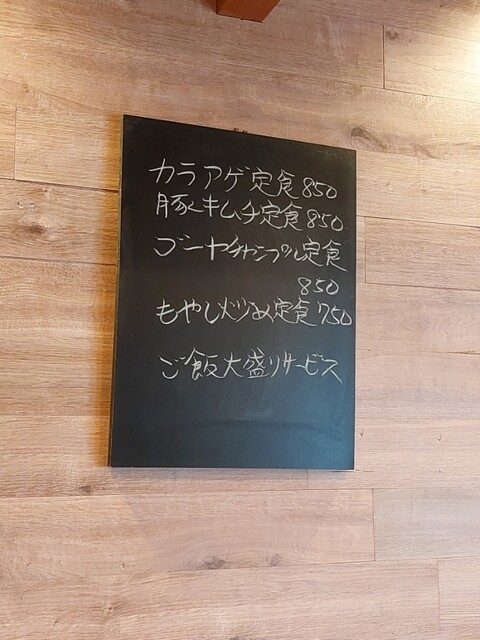 カラアゲ定食850
豚キムチ定食850
ゴーヤチャンプル定食
850
もやし炒め定食750
ご飯大盛りサービス